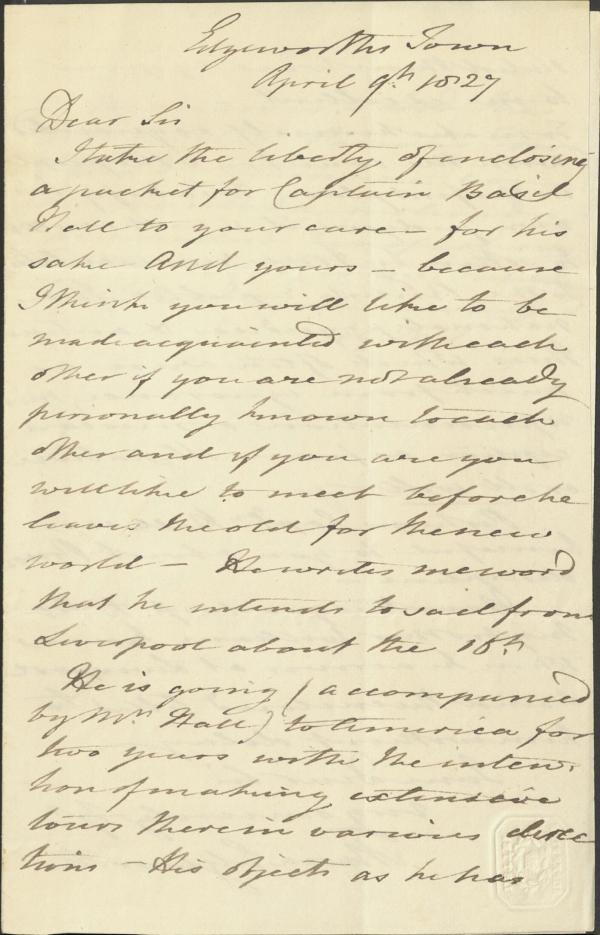 Edgeworths Town
April 9th 1827
Dear Sir
I take the liberty of enclosing
a packet for Captain Basil
Hall to your care – for his
sake And yours – because
I think you will like to be
made acquainted with each
other if you are not already
personally known to each
other and if you are you
will like to meet before he
leaves the old for the new
world – He writes me word
that he intends to sail from
Liverpool about the 16th
He is going (accompanied
by Mrs Hall) to America for
two years with the inten-
tion of making extensive
tours there in various direc
tions – His objects as he has